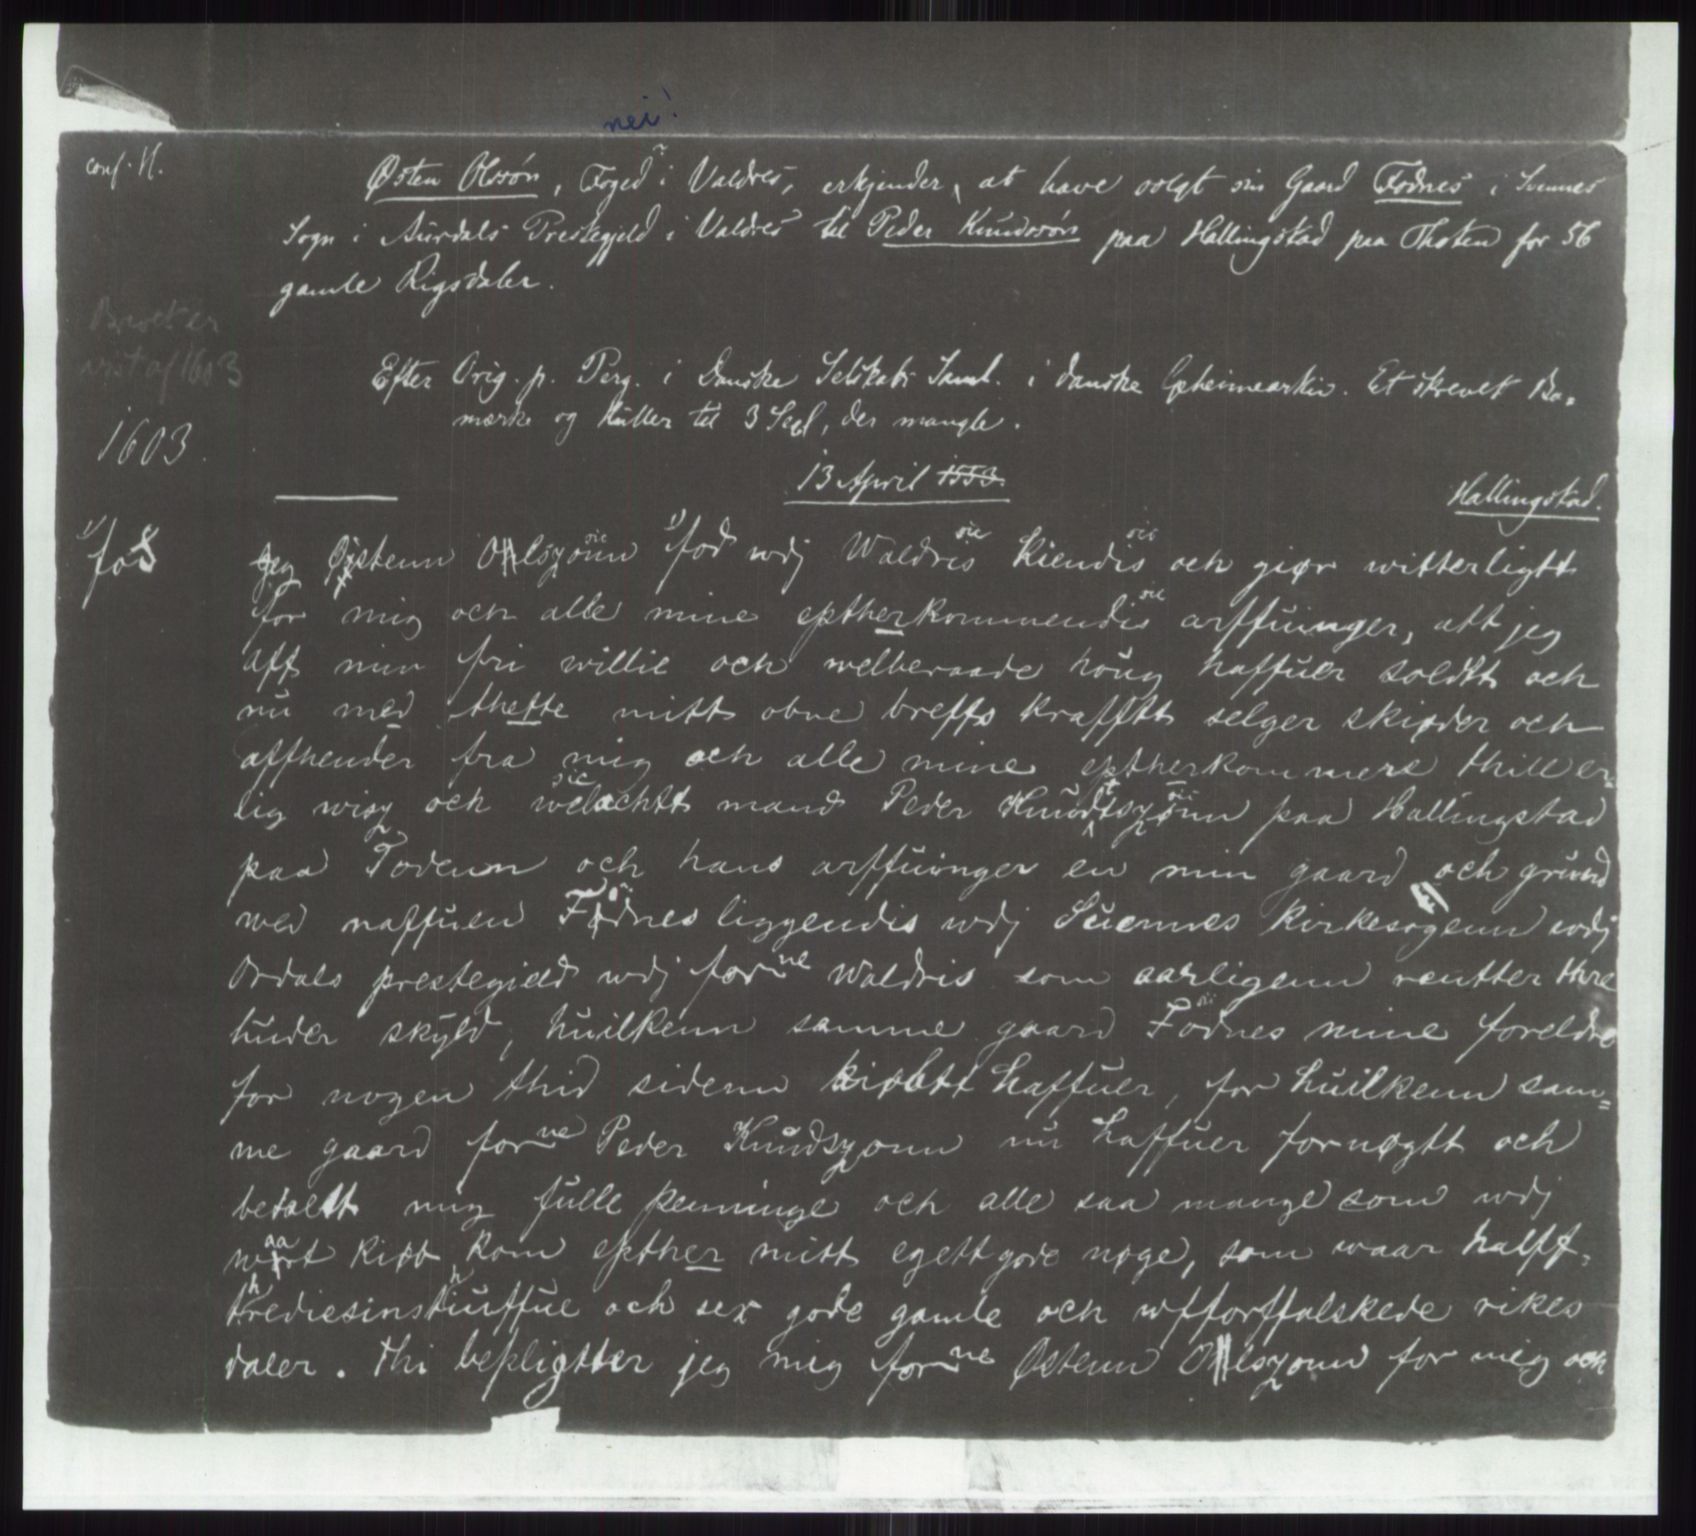 nei!
conf. H.
Østen Olssøn, Foged i Valdres, erkjender, at have solgt sin Gaard Fodnes i Svennes
Sogn i Aurdals Prestegjeld i Valdres til Peder Knudssøn paa Hallingstad paa Thoten for 56
gamle Rigsdaler.
Brevet er
vist af 1603
Efter Orig. p. Perg. i Danske Selskabs Saml. i danske Geheimearkiv. Et skrevet Bo-
mærke og Huller til 3 Segl, der mangle.
1603.
13 April 1553.
Hallingstad.
1) fos
Jeg Østenn Ollszonn sic 1) fod wdj Waldris sic kiendis sic och giør witterligtt
for mig och alle mine eptherkommendis sic arffuinger, att jeg
aff min fri willie och welberaade houg haffuer soldtt och
nu med thette mitt obne breffs krafftt selger skiøder och
affhender fra mig och alle mine eptherkommere thill er-
lig wisz och welachtt sic mand Peder Knudtszonn sic paa Hallingstad
paa Todenn och hans arffuinger en min gaard och grund
wed naffuen Fodnes sic liggendis wdj Suennes kirkesogenn wdj
Ordals prestegield wdj forne Waldris som aarligenn rentter thre
huder skyld, huilkenn samme gaard Fodnes sic mine foreldre
for nogen thid sidenn kiøbtt haffuer, for huilkenn sam-
me gaard forne Peder Knudszonn nu haffuer fornøgtt och
betaltt mig fulle penninge och alle saa mange som wdj
waart kiøb kom epther mitt egett gode nøge, som waar halff-
thrediesinsthiuffue och sex gode gamle och wfforffalskede rikes
daler. Thi bepligtter jeg mig forne Østenn Ollszonn for mig och